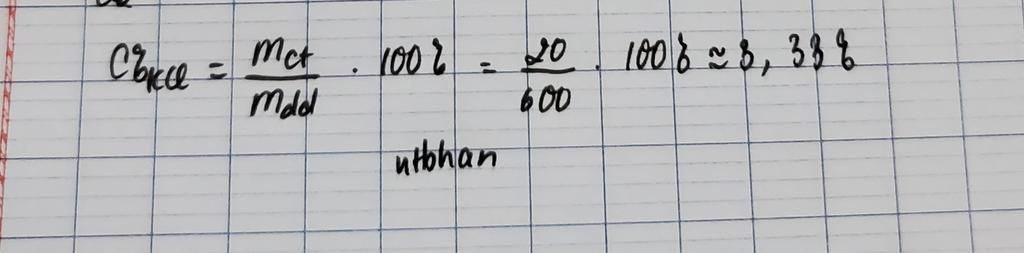 C%KCl = mct/mdd . 100% = 20/600 . 100% ≈ 3,33%
uHbhan